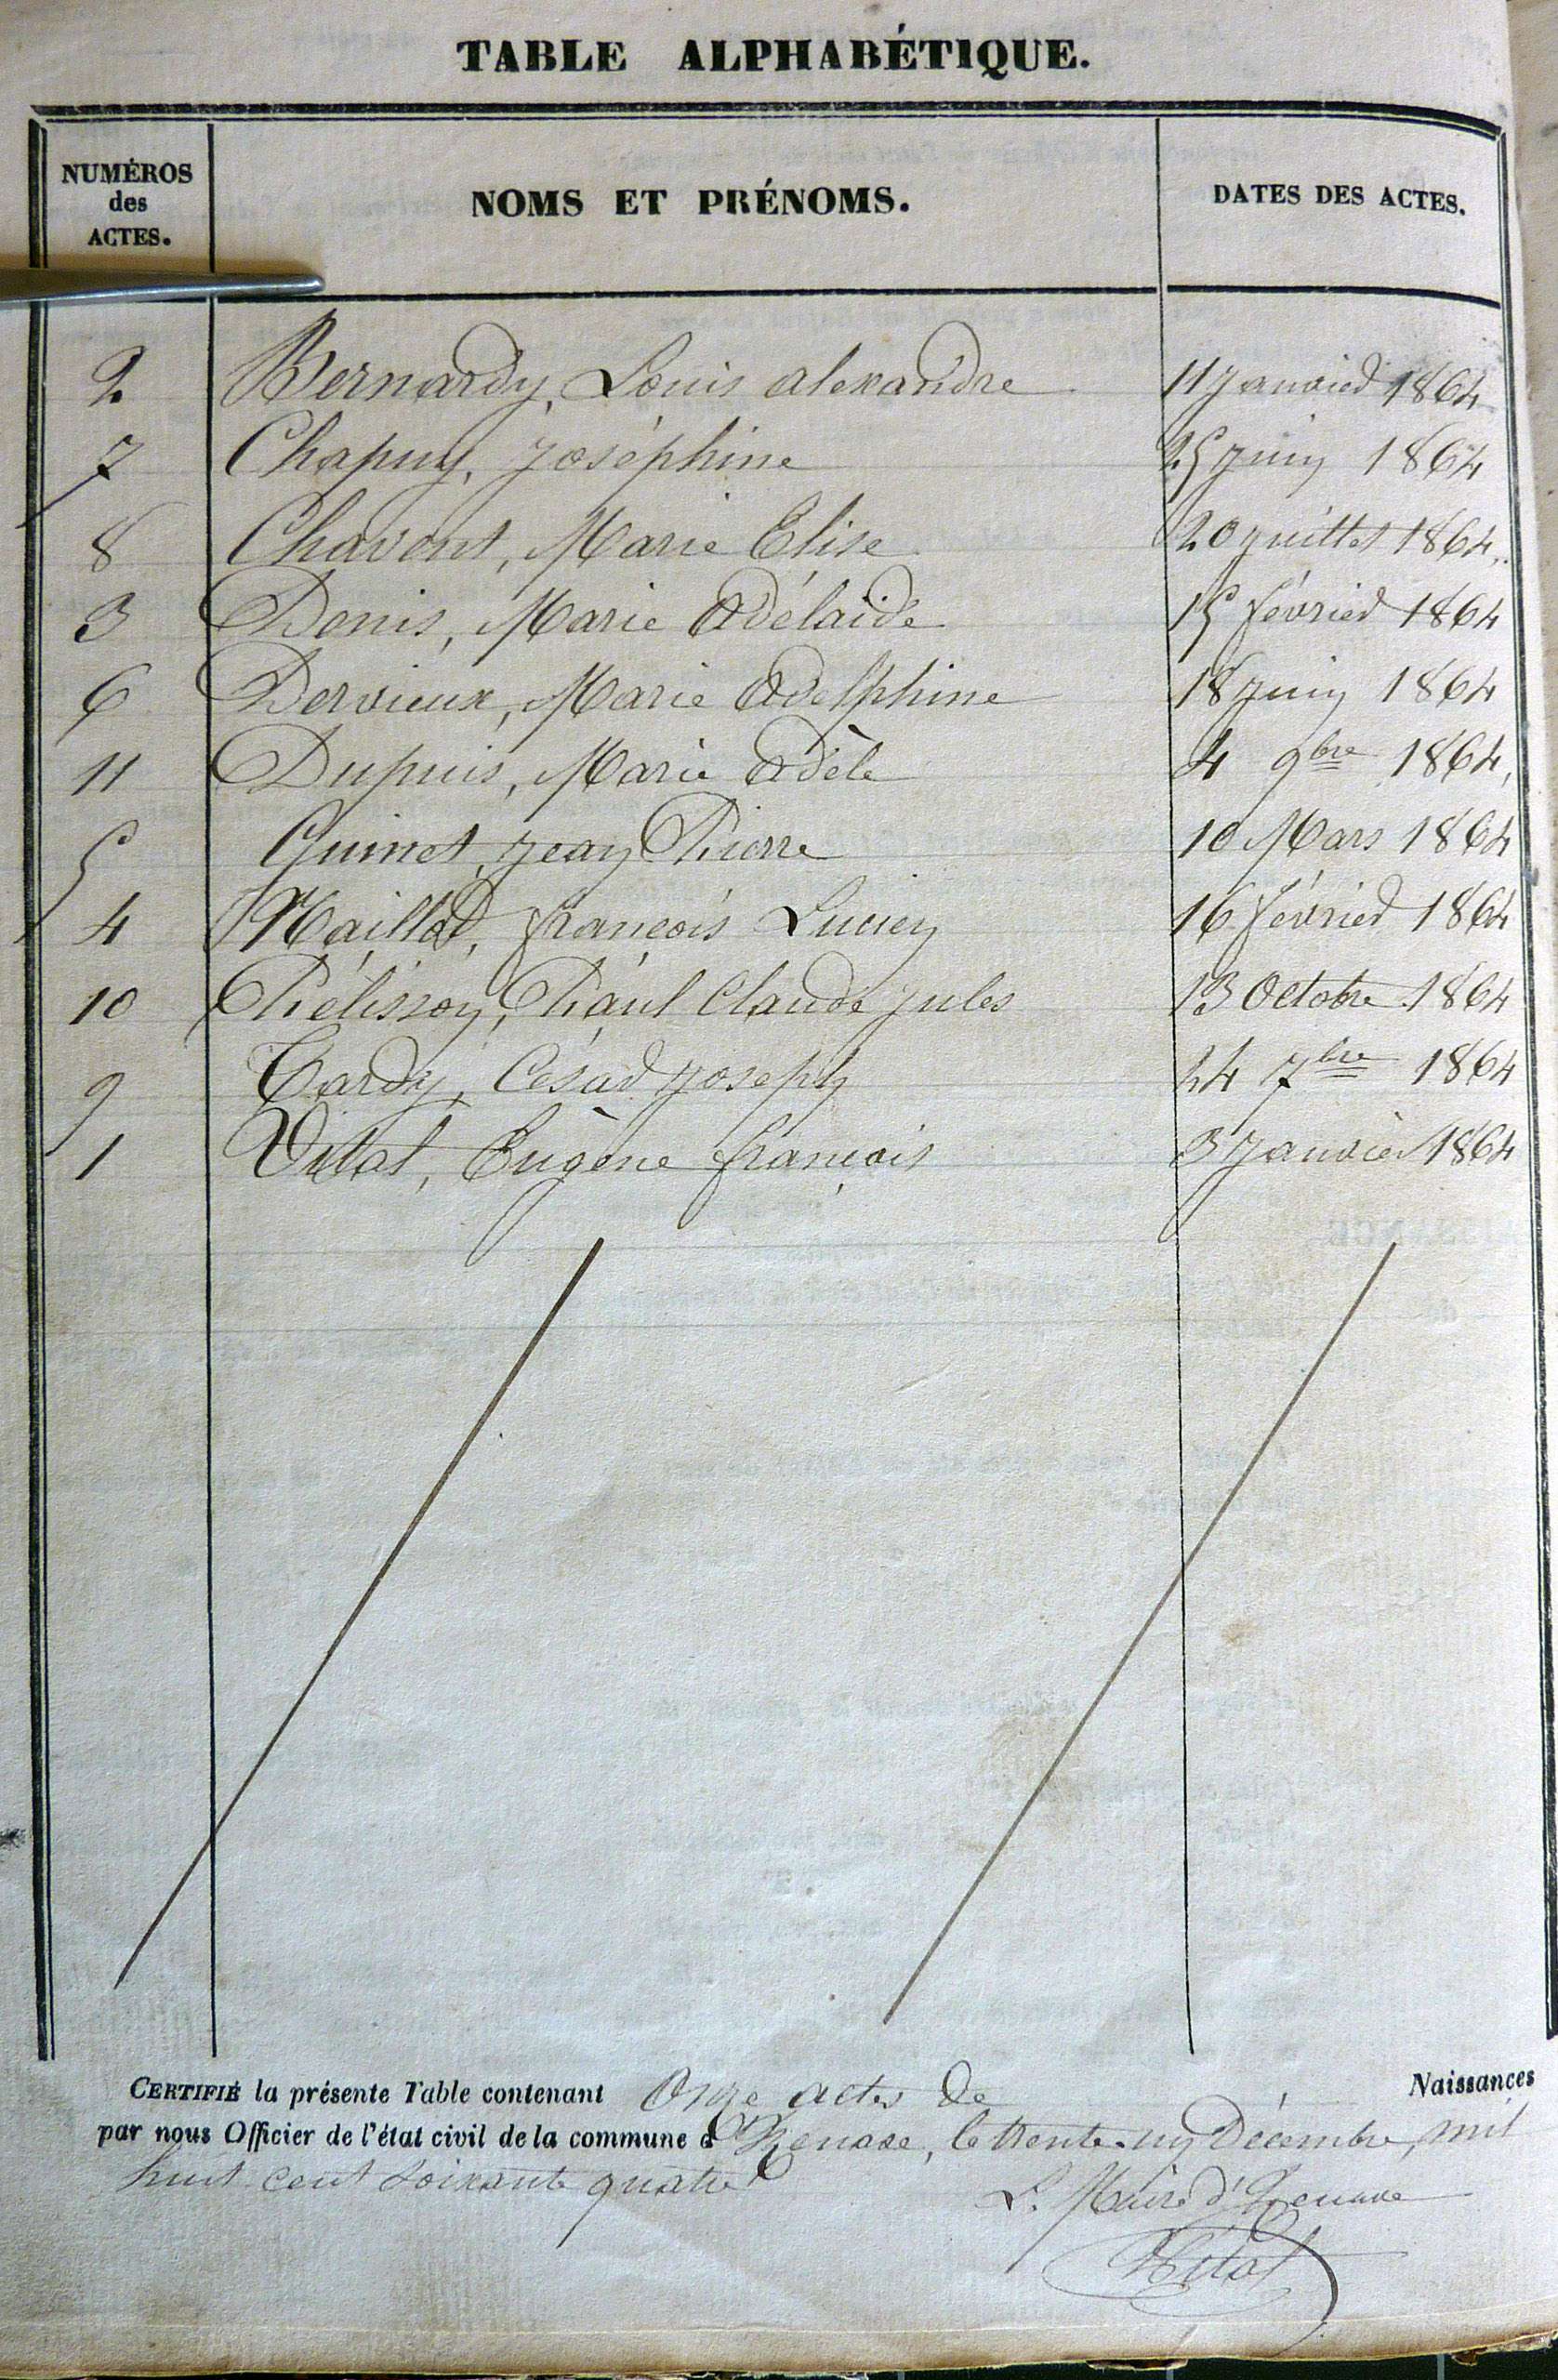 TABLE ALPHABÉTIQUE.
NUMÉROS des ACTES. NOMS ET PRÉNOMS. DATES DES ACTES.
2 Bernardy, Louis alexandre 11 Janvier 1864
7 Chapuy, Joséphine 25 Juin 1864
8 Chavent, Marie Elise 20 Juillet 1864
3 Denis, Marie Adélaide 15 février 1864
6 Dervieux, Marie Adelphine 18 Juin 1864
11 Dupuis, Marie Adèle 4 9bre 1864
5 Guinet, Jean Pierre 10 Mars 1864
4 Maillot, françois Lucien 16 février 1864
10 Pélisson, Paul Claude Jules 13 Octobre 1864
9 Tardy, César Joseph 24 7bre 1864
1 Vital, Eugène françois 3 Janvier 1864
CERTIFIÉ la présente Table contenant Onze actes de Naissances
par nous Officier de l'état civil de la commune d' , le trente-un Décembre, mil
huit cent soixante quatre
Le Maire
Vital